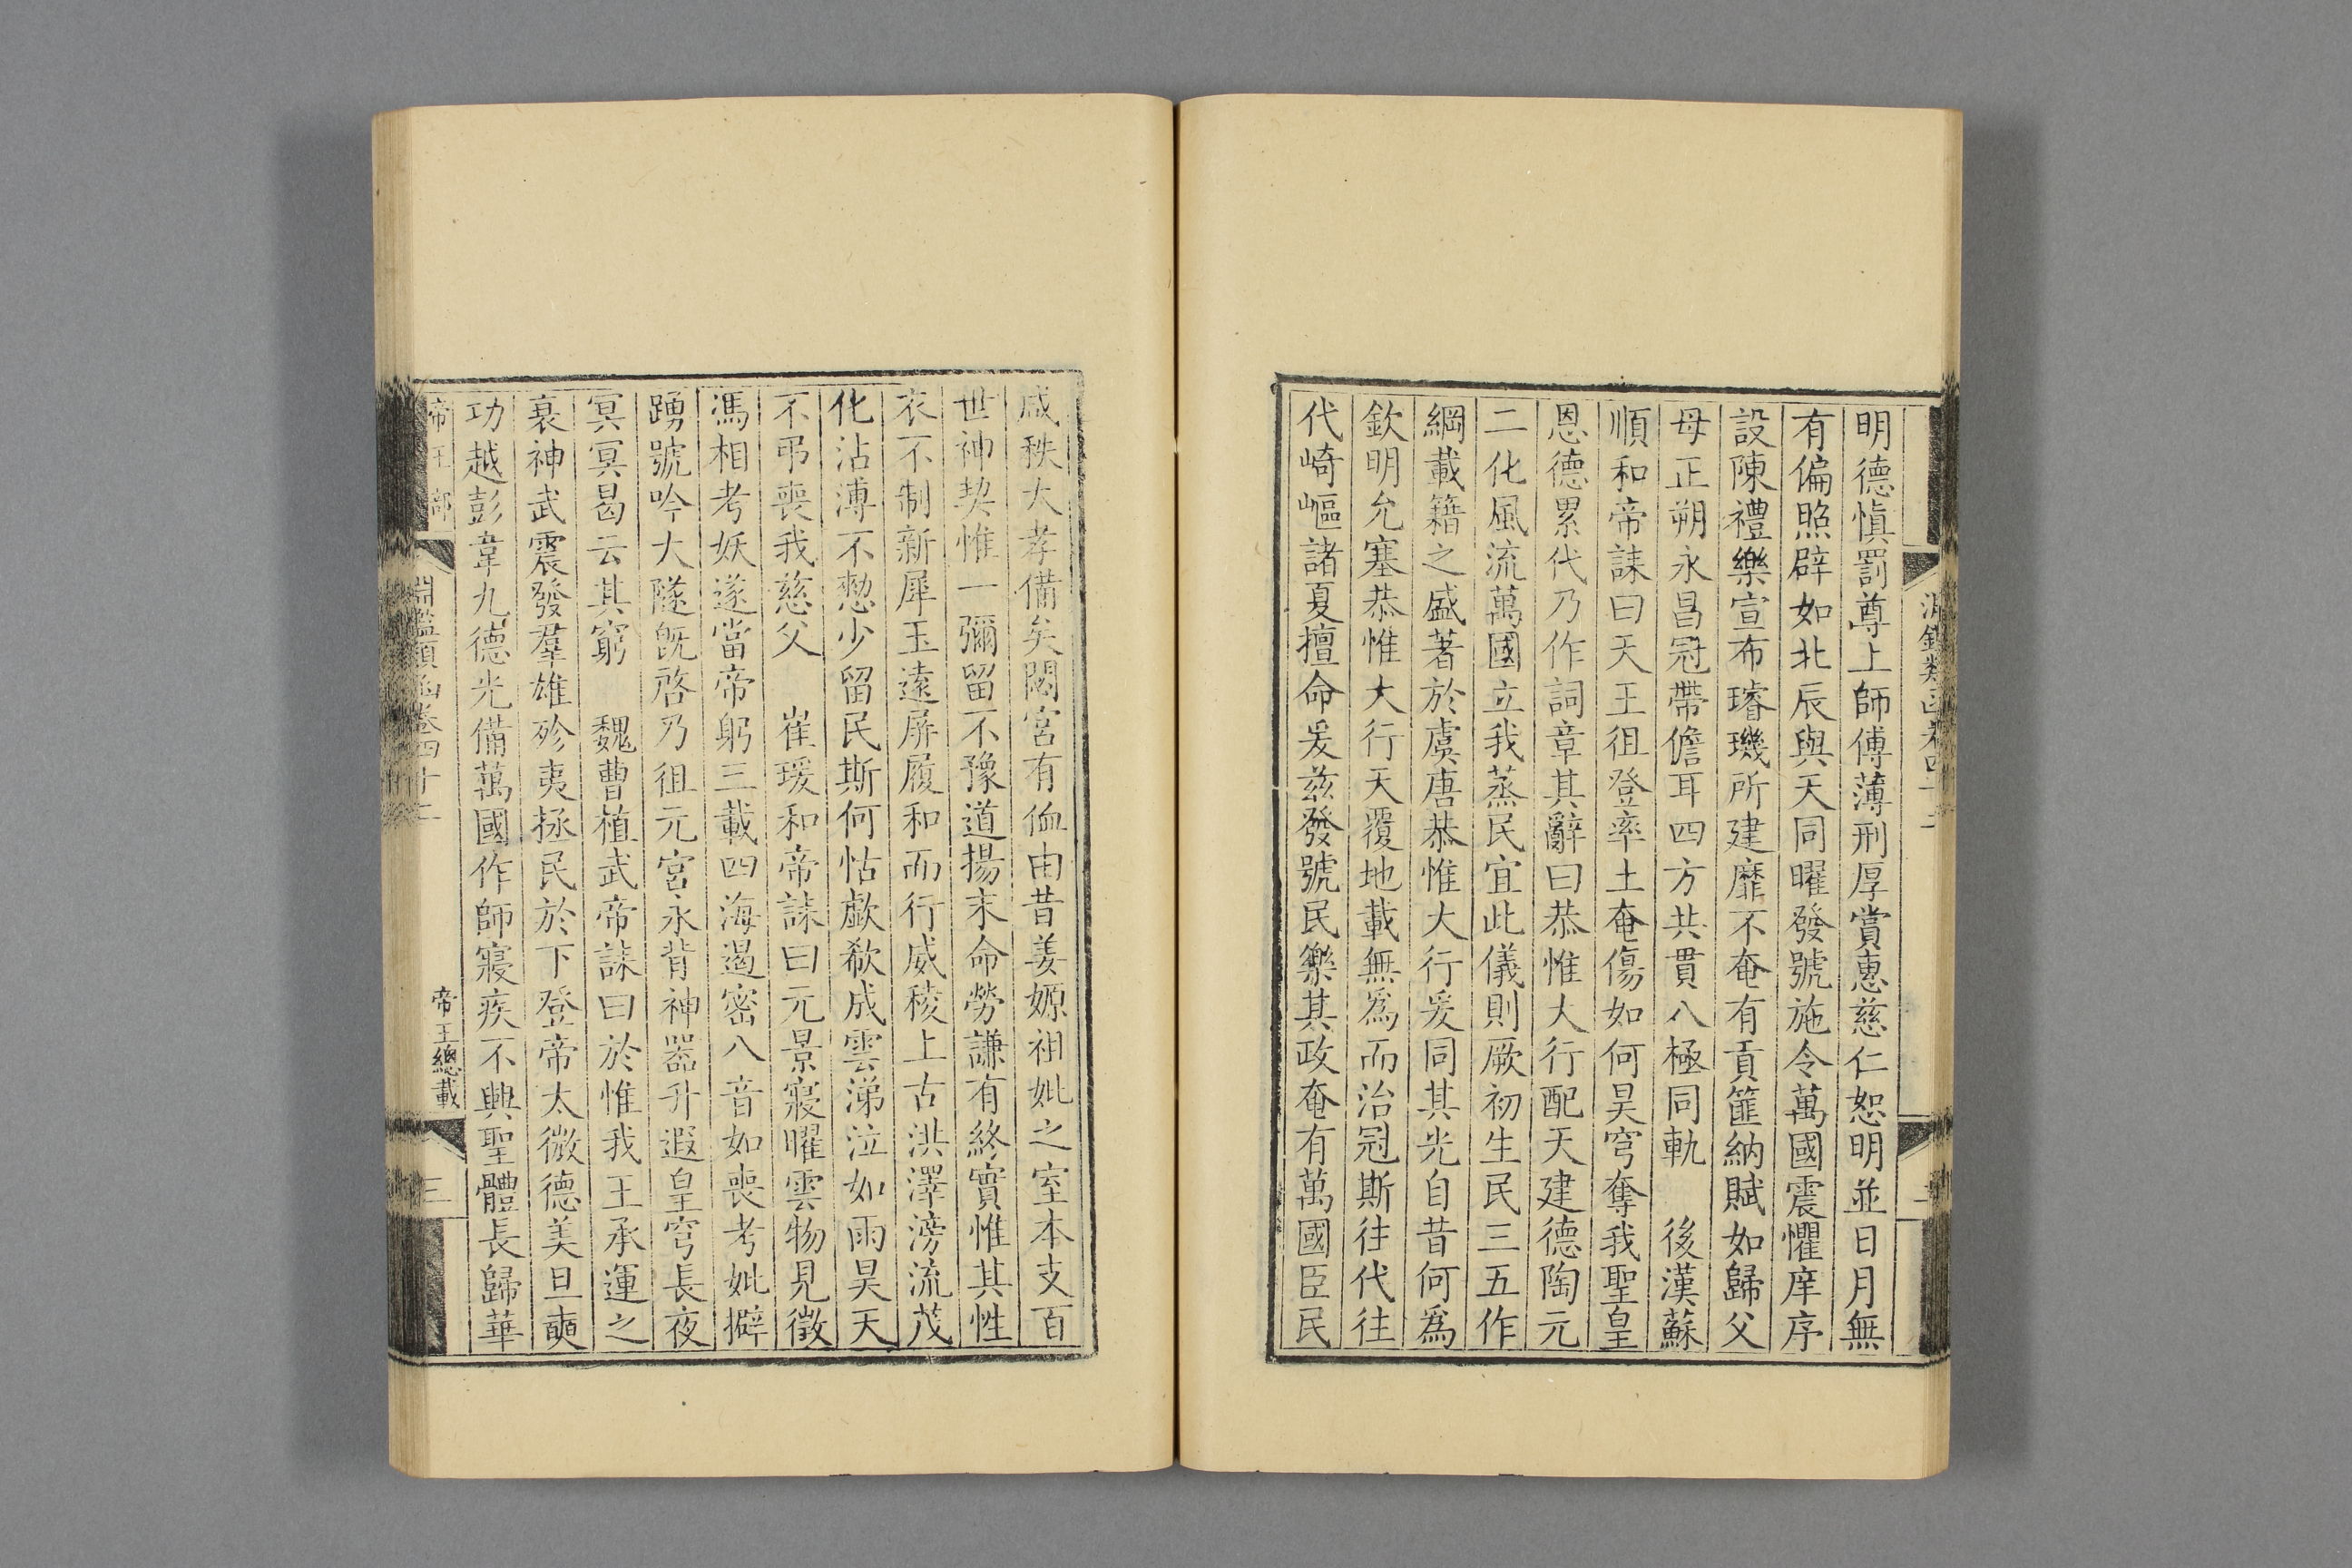 明德愼罰尊上師傅薄刑厚賞惠慈仁恕明並日月無
有偏照辟如北辰與天同曜發號施令萬國震懼庠序
設陳禮樂宣布璿璣所建靡不奄有貢篚納賦如歸父
母正朔永昌冠帶儋耳四方共貫八極同軌　後漢蘇
順和帝誄曰天王徂登率土奄傷如何昊穹奪我聖皇
恩德累代乃作詞章其辭曰恭惟大行配天建德陶元
二化風流萬國立我蒸民宜此儀則厥初生民三五作
綱載籍之盛著於虞唐恭惟大行爰同其光自昔何爲
欽明允塞恭惟大行天覆地載無爲而治冠斯往代往
代崎嶇諸夏擅命爰兹發號民樂其政奄有萬國臣民
咸秩大孝備矣閟宮有侐由昔姜嫄祖妣之室本支百
世神契惟一彌留不豫道揚末命勞謙有終實惟其性
衣不制新犀玉遠屏履和而行威稜上古洪澤滂流茂
化沾溥不憖少留民斯何怙歔欷成雲涕泣如雨昊天
不弔喪我慈父　崔瑗和帝誄曰元景寢曜雲物見徵
馮相考妖遂當帝躬三載四海遏密八音如喪考妣擗
踴號吟大隧旣啓乃徂元宮永背神器升遐皇穹長夜
冥冥曷云其窮　魏曹植武帝誄曰於惟我王承運之
衰神武震發羣雄殄夷拯民於下登帝太微德美旦奭
功越彭韋九德光備萬國作師寢疾不興聖體長歸華
帝王部
淵鑑類函卷四十二
帝王總載
三